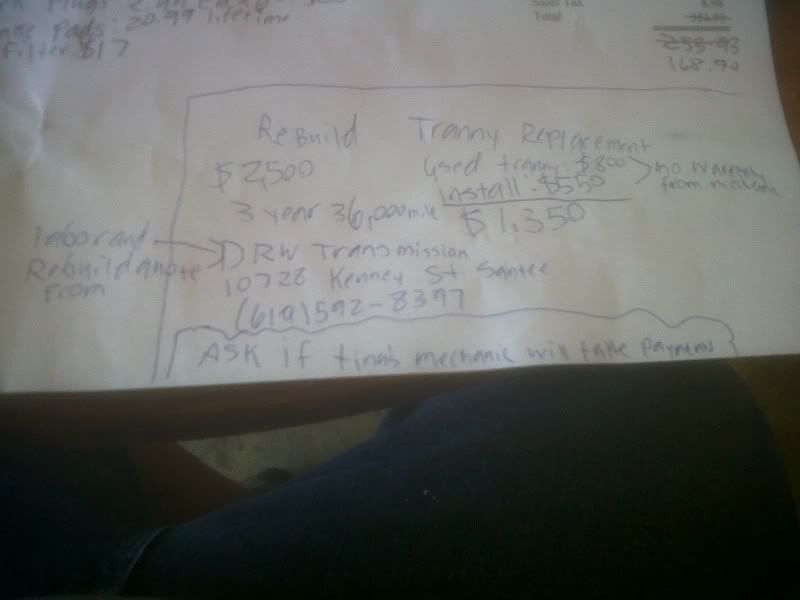 Plugs 2 an
Pads: 20.99 lifetime
Filter: $17
Sales Tax
Total
168.90
Rebuild
$2,500
3 year 36,000 mile
Tranny Replacement
used tranny: $800
install - $550
$1,350
no warranty
from mechanic
Labor and
Rebuild quote
from
DRW Transmission
10728 Kenney St Santee
(619) 592-8397
ASK if tina's mechanic will take payments